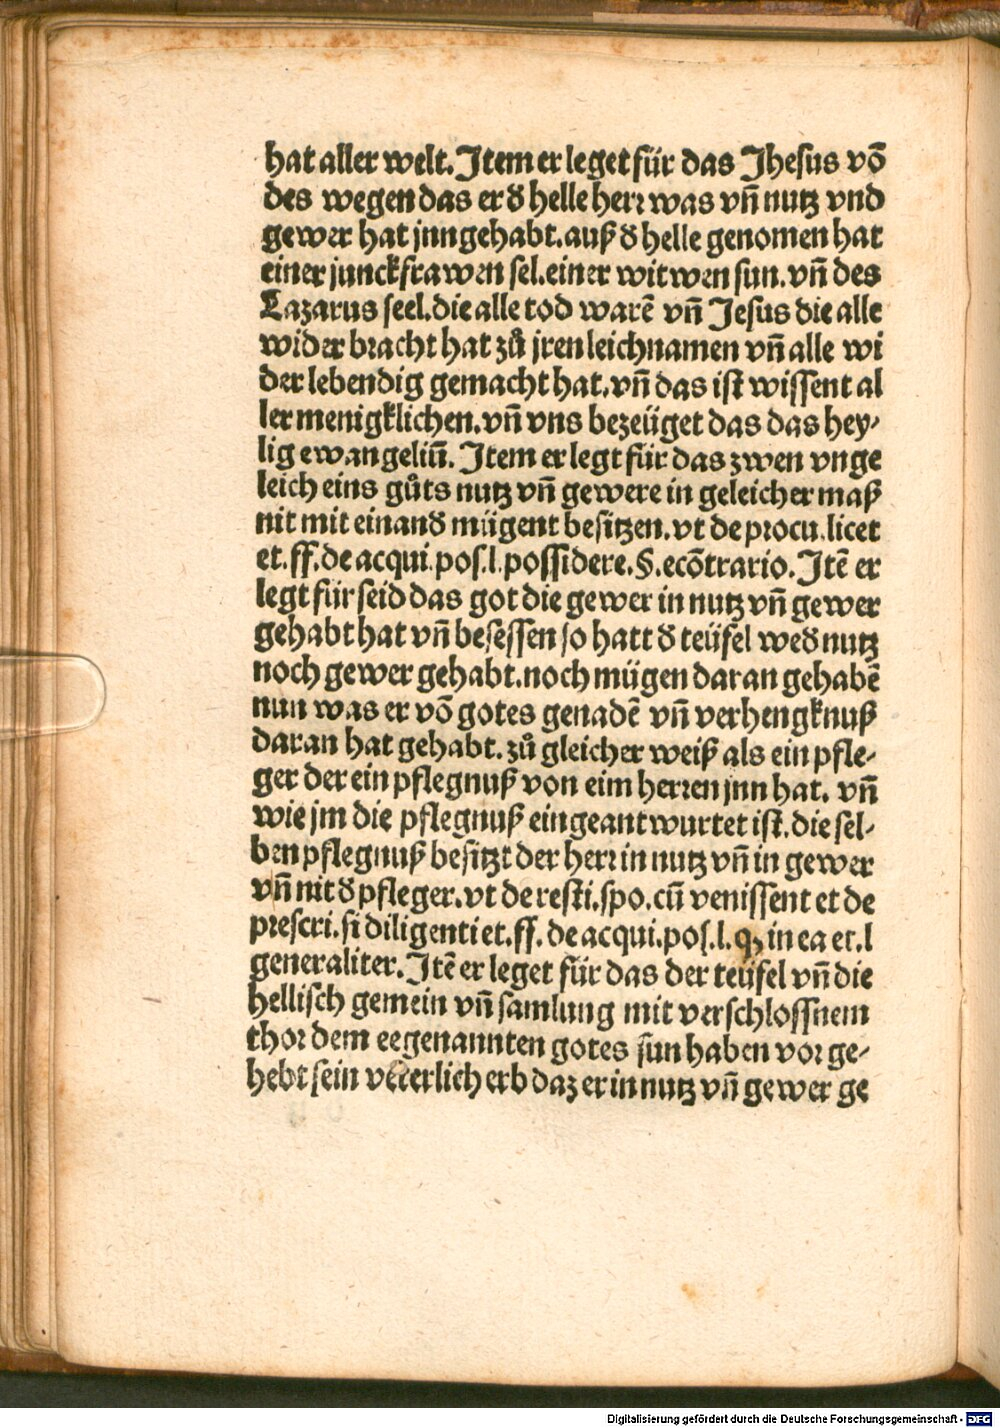 hat aller welt. Jtem er leget für das Jhesus võ
des wegen das er d̕ helle herr was vñ nutz vnd
gewer hat jnngehabt. auß d̕ helle genomen hat
einer junckfrawen sel. einer witwen sun. vñ des
Lazarus seel. die alle tod warẽ vñ Jesus die alle
wider bracht hat zů jren leichnamen vñ alle wi
der lebendig gemacht hat. vñ das ist wissent al
ler menigklichen. vñ vns bezeüget das das hey-
lig ewangeliũ. Jtem er legt für das zwen vnge
leich eins gůts nutz vñ gewere in geleicher maß
nit mit einand̕ mügent besitzen. vt de procu. licet
et. ff. de acqui. pos. l. possidere. §. ecõtrario. Jtẽ er
legt für seid das got die gewer in nutz vñ gewer
gehabt hat vñ besessen so hatt d̕ teüfel wed̕ nutz
noch gewer gehabt. noch mügen daran gehabẽ
nun was er võ gotes genadẽ vñ verhengknuß
daran hat gehabt. zů gleicher weiß als ein pfle-
ger der ein pflegnuß von eim herren jnn hat. vñ
wie jm die pflegnuß eingeantwurtet ist. die sel-
ben pflegnuß besitzt der herr in nutz vñ in gewer
vñ nit d̕ pfleger. vt de resti. spo. cũ venissent et de
prescri. si diligenti et. ff. de acqui. pos. l. qꝫ in ea et. l
generaliter. Jtẽ er leget für das der teüfel vñ die
hellisch gemein vñ samlung mit verschlossnem
thor dem eegenannten gotes sun haben vor ge-
hebt sein veterlich erb daz er in nutz vñ gewer ge
Digitalisierung gefördert durch die Deutsche Forschungsgemeinschaft - DFG